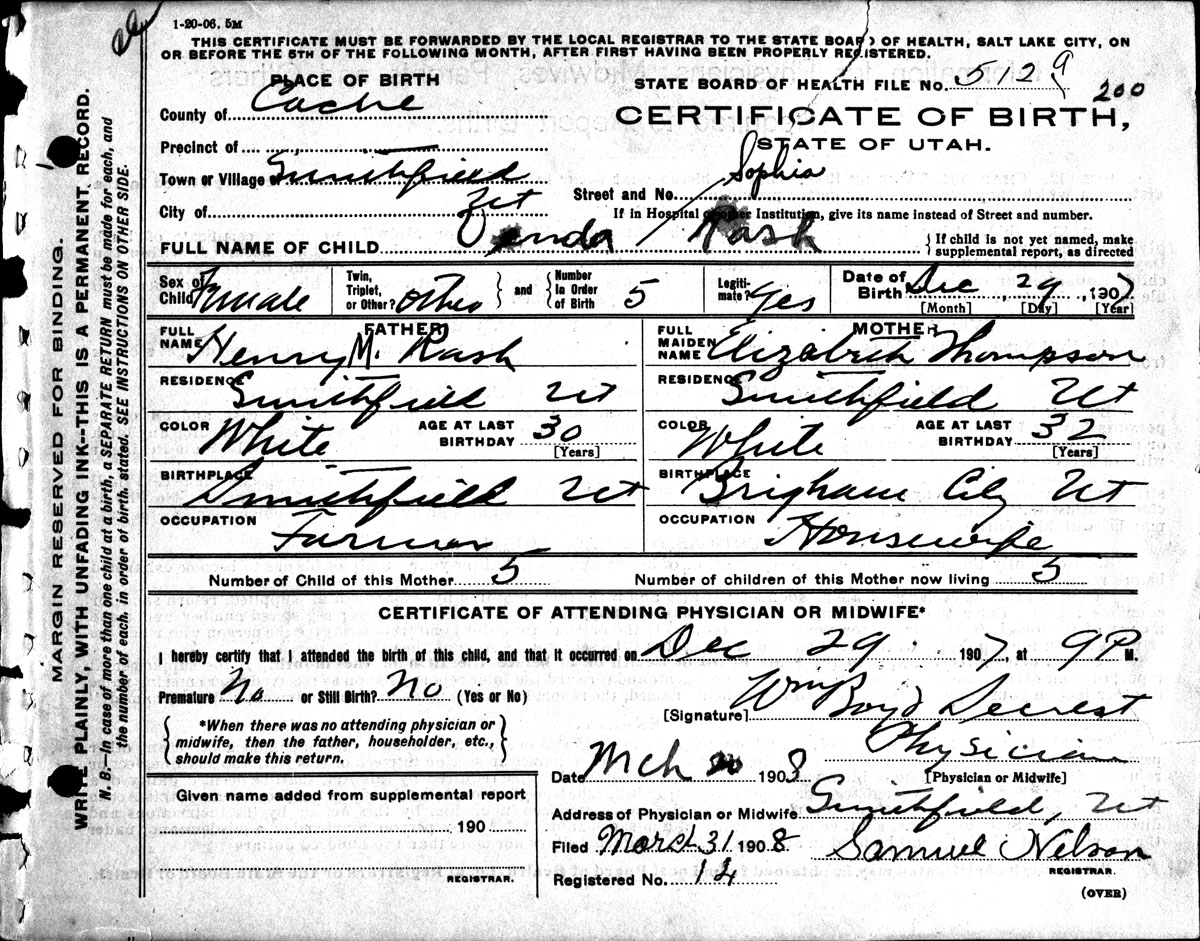 1-20-06. 5M
THIS CERTIFICATE MUST BE FORWARDED BY THE LOCAL REGISTRAR TO THE STATE BOARD OF HEALTH, SALT LAKE CITY, ON
OR BEFORE THE 5TH OF THE FOLLOWING MONTH, AFTER FIRST HAVING BEEN PROPERLY REGISTERED.
PLACE OF BIRTH
STATE BOARD OF HEALTH FILE No. 5129
200
County of Cache
CERTIFICATE OF BIRTH,
Precinct of
STATE OF UTAH.
Town or Village of Smithfield
Sophia
Street and No.
City of Ut
If in Hospital or other Institution, give its name instead of Street and number.
FULL NAME OF CHILD Venda Rash
If child is not yet named, make
supplemental report, as directed
Sex of Child Female
Twin, Triplet, or Other? other and Number In Order of Birth 5
Legitimate? Yes
Date of Birth Dec, 29, 1907
[Month] [Day] [Year]
FATHER
FULL NAME Henry M. Rash
RESIDENCE Smithfield Ut
COLOR White AGE AT LAST BIRTHDAY 30
[Years]
BIRTHPLACE Smithfield Ut
OCCUPATION Farmer
MOTHER
FULL MAIDEN NAME Elizabeth Thompson
RESIDENCE Smithfield Ut
COLOR White AGE AT LAST BIRTHDAY 32
[Years]
BIRTHPLACE Brigham City Ut
OCCUPATION Housewife
Number of Child of this Mother 5 Number of children of this Mother now living 5
CERTIFICATE OF ATTENDING PHYSICIAN OR MIDWIFE*
I hereby certify that I attended the birth of this child, and that it occurred on Dec 29 1907, at 9 P M.
Premature No or Still Birth? No (Yes or No)
[Signature] Wm Boyd Secrest
*When there was no attending physician or
midwife, then the father, householder, etc.,
should make this return.
Physician
Date Mch 1908 [Physician or Midwife]
Given name added from supplemental report
190
REGISTRAR.
Address of Physician or Midwife Smithfield, Ut
Filed March 31 1908 Samuel Nelson
REGISTRAR.
Registered No. 14
(OVER)
MARGIN RESERVED FOR BINDING.
WRITE PLAINLY, WITH UNFADING INK--THIS IS A PERMANENT RECORD.
N. B.—In case of more than one child at a birth, a SEPARATE RETURN must be made for each, and
the number of each, in order of birth, stated. SEE INSTRUCTIONS ON OTHER SIDE.